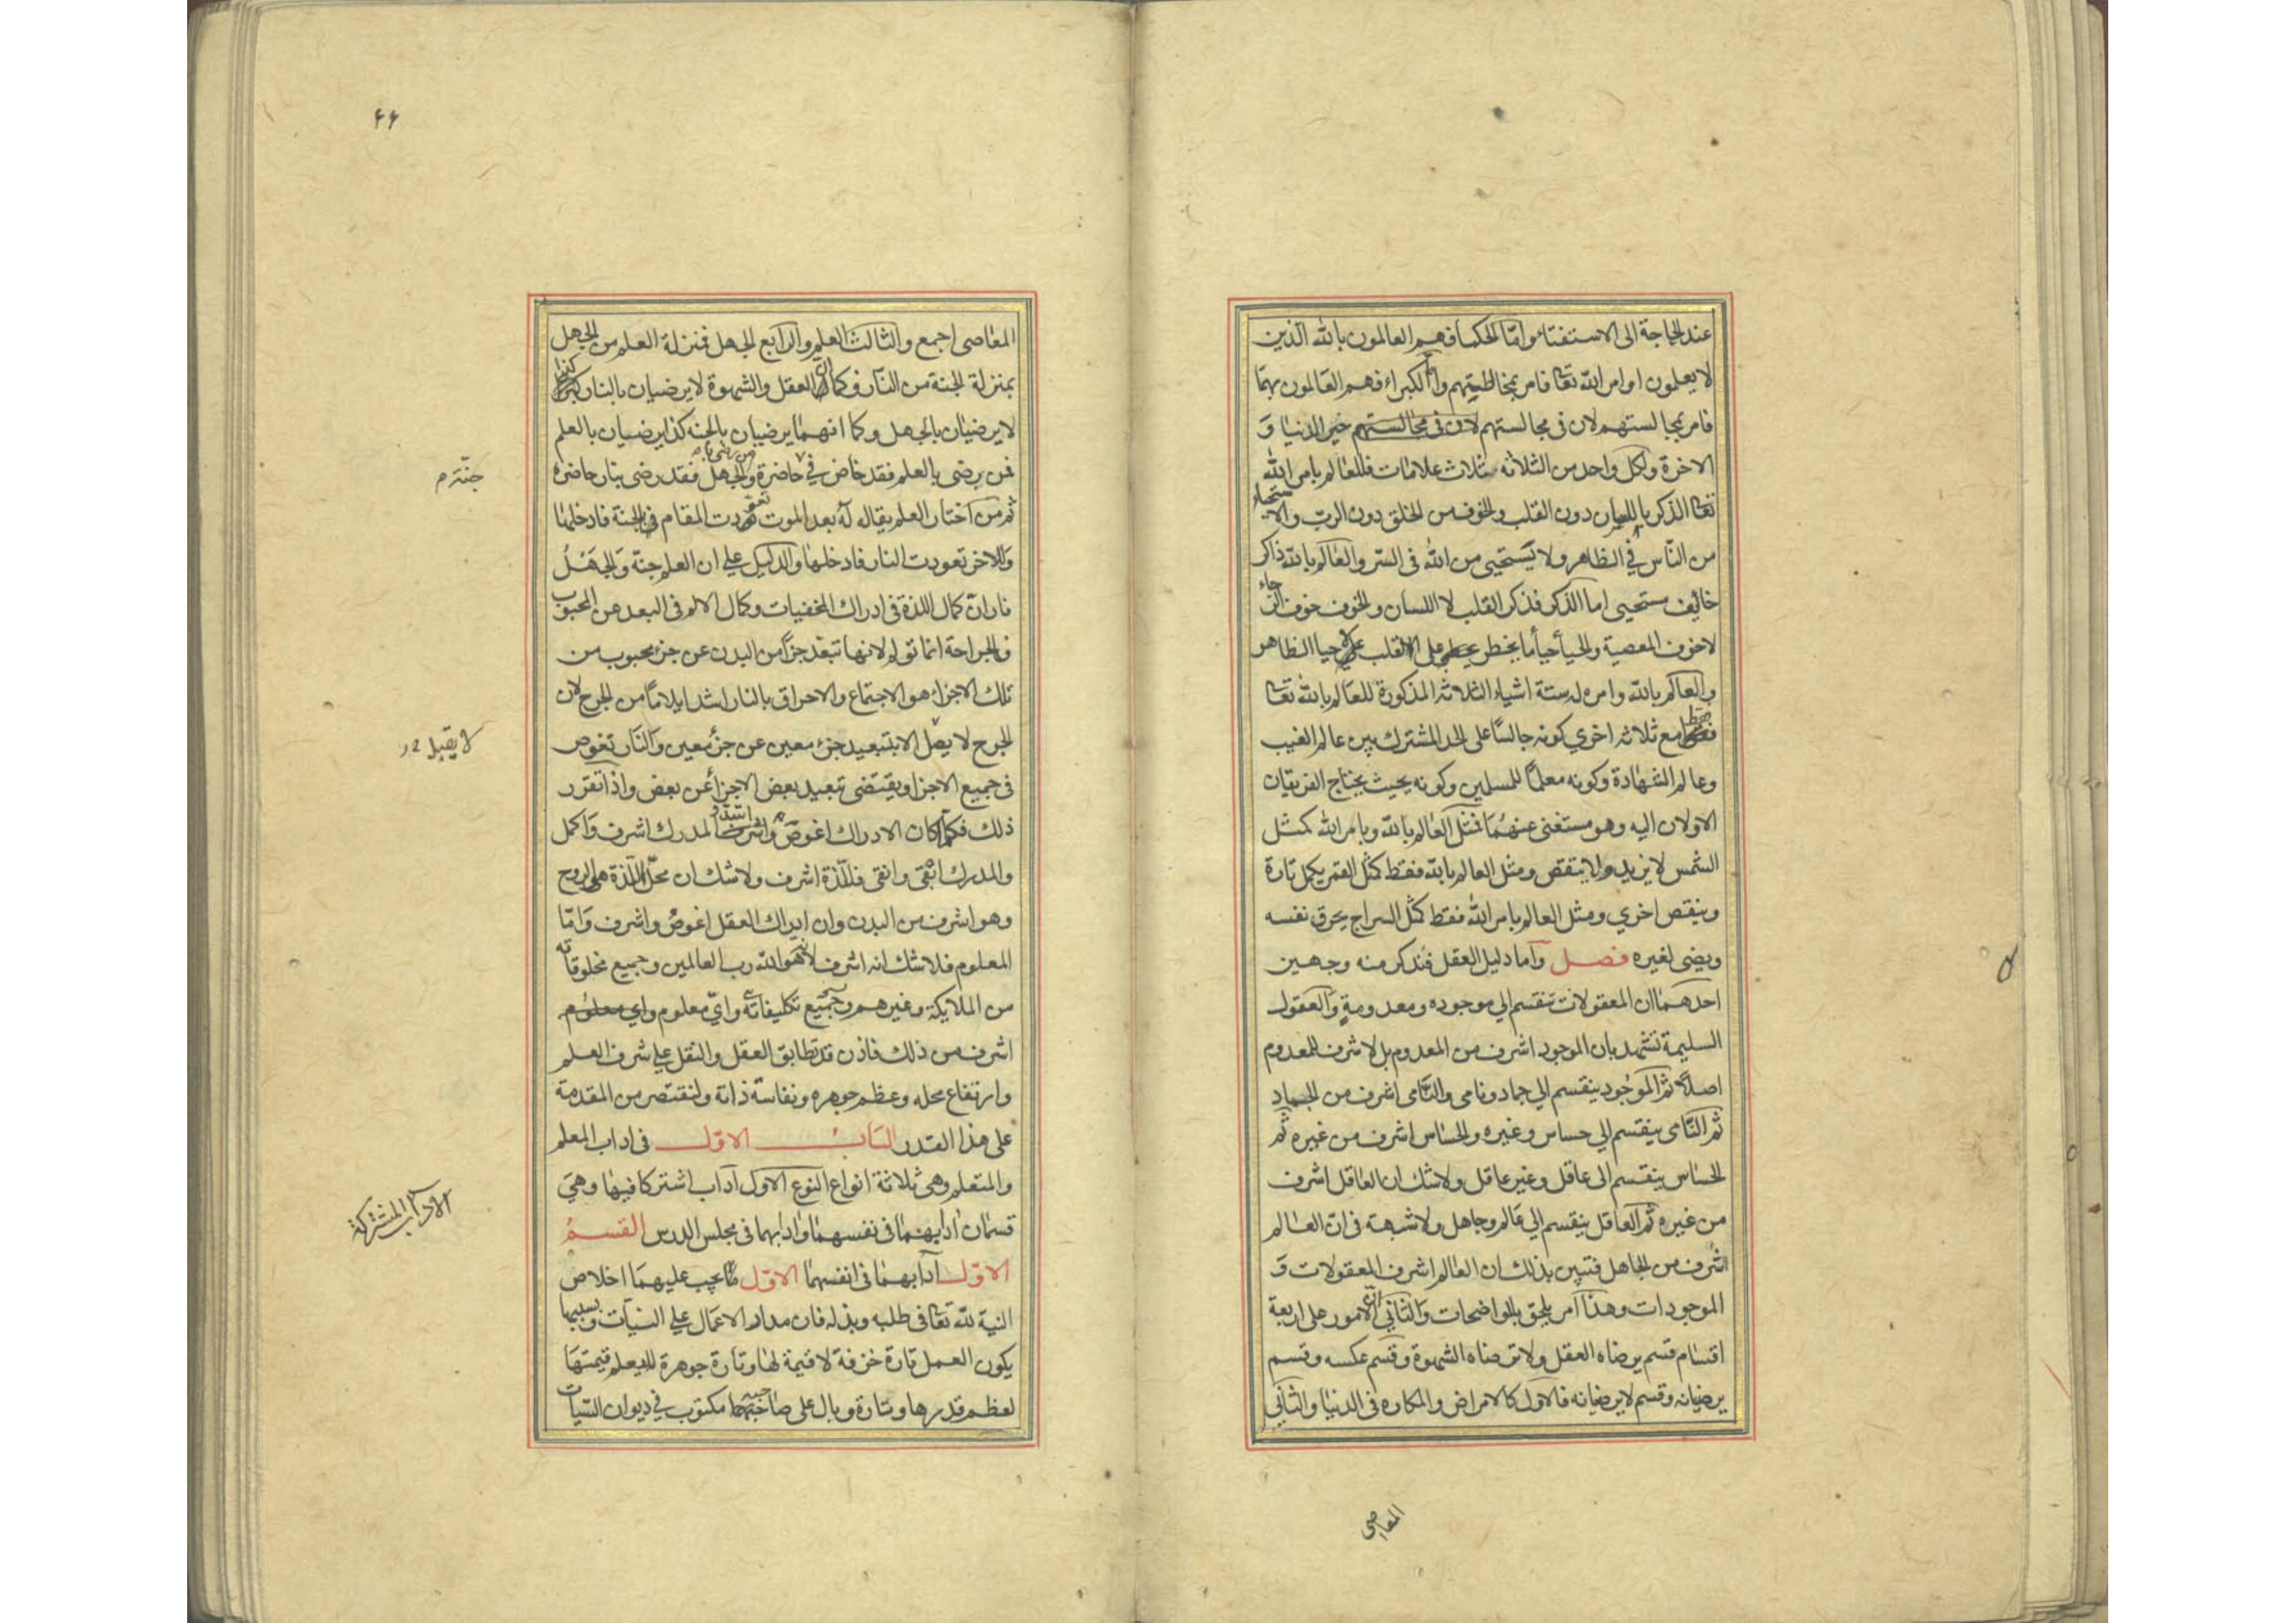 عند الحاجة الى الاستفتاء واما الحكماء فهم العالمون بالله الذين
لا يعلمون اوامر الله تعا فامر بمخالطتهم واما الكبراء فهم العالمون بهما
فامر بمجالستهم لان فى مجالستهم لان فى مجالستهم خير الدنيا و
الاخرة ولكل واحد من الثلاثه ثلاث علامات فللعالم بامر الله
تعا الذكر باللسان دون القلب والخوف من الخلق دون الرب والاستحياء
من الناس في الظاهر ولا يستحيى من الله فى السر والعالم بالله ذاكر
خائف مستحيى اما الذكر فذكر القلب لا اللسان والخوف خوف الرجاء
لا خوف المعصية والحيا حيأ ما يخطر على القلب لا حيا الظاهر
والعالم بالله وامره له ستة اشياء الثلاثه المذكورة للعالم بالله تعا
فقط مع ثلاثه اخرى كونه جالسًا على الحد المشترك بين عالم الغيب
وعالم الشهادة وكونه معلمًا للمسلمين وكونه بحيث يحتاج الفريقان
الاولان اليه وهو مستغنى عنهما فمثل العالم بالله وبامر الله كمثل
الشمس لا يزيد ولا ينقص ومثل العالم بالله فقط كمثل القمر يكمل تارة
وينقص اخرى ومثل العالم بامر الله فقط كمثل السراج يحرق نفسه
ويضى لغيره فصل واما دليل العقل فنذكر منه وجهين
احدهما ان المعقولات تنقسم الى موجوده ومعدومة والعقول
السليمة تشهد بان الموجود اشرف من المعدوم بل لا شرف للمعدوم
اصلًا ثم الموجود ينقسم الى جماد ونامى والنامى اشرف من الجماد
ثم النامى ينقسم الى حساس وغيره والحساس اشرف من غيره ثم
الحساس ينقسم الى عاقل وغير عاقل ولا شك ان العاقل اشرف
من غيره ثم العاقل ينقسم الى عالم وجاهل ولا شبهة فى ان العالم
اشرف من الجاهل فتبين بذلك ان العالم اشرف المعقولات و
الموجودات وهذا امر يلحق بالواضحات والثاني ان الامور على اربعة
اقسام قسم يرضاه العقل ولا ترضاه الشهوة وقسم عكسه وقسم
يرضيانه وقسم لا يرضيانه فالاول كالامراض والمكاره فى الدنيا والثاني
المعاصى
۴۶
المعاصى اجمع والثالث العلم والرابع الجهل فمنزلة العلم من الجهل
بمنزلة الجنة من النار فكما ان العقل والشهوة لا يرضيان بالنار كذا
لا يرضيان بالجهل وكما انهما يرضيان بالجنه كذا يرضيان بالعلم
فمن يرضى بالعلم فقد خاض في حاضرة ومن رضى بالجهل فقد رضى بنار حاضره
جنة م
ثم من اختار العلم يقال له بعد الموت تعودت المقام في الجنة فادخلها
وللاخر تعودت النار فادخلها والدليل على ان العلم جنة والجهل
نار ان كمال اللذة فى ادراك المخفيات وكمال الالم فى البعد عن المحبوب
فالجراحة انما تولم لانها تبعد جزأ من البدن عن جزء محبوب من
تلك الاجزاء هو الاجتماع والاحراق بالنار اشد ايلامًا من الجرح لان
الجرح لا يصل الا بتبعيد جزء معين عن جزء معين والنار تغوص
فى جميع الاجزا ويقتضى تبعيد بعض الاجزأ عن بعض واذا تقرر
ذلك فكلما كان الادراك اغوص واشد والمدرك اشرف واكمل
والمدرك ابقى وانقى فاللذة اشرف ولا شك ان محل اللذة هى الروح
وهو اشرف من البدن وان ادراك العقل اغوص واشرف واما
المعلوم فلا شك انه اشرف لانه هو الله رب العالمين وجميع مخلوقاته
من الملايكة وغيرهم وجميع تكليفاته واىّ معلوم واى معلوم
اشرف من ذلك فاذن قد تطابق العقل والنقل على شرف العلم
وارتفاع محله وعظم جوهره ونفاسة ذاته ولنقتصر من المقدمة
على هذا القدر الباب الاول فى اداب المعلم
والمتعلم وهى ثلاثة انواع النوع الاول آداب اشتركا فيها وهى
الآداب المشتركة
قسمان ادابهما فى نفسهما وادابهما فى مجلس الدرس القسم
الاول آدابهما فى انفسهما الاول ما يجب عليهما اخلاص
النية لله تعا فى طلبه وبذله فان مدار الاعمال على النيات وبسببها
يكون العمل تارة خزفة لا قيمة لها وتارة جوهرة لا يعلم قيمتها
لعظم قدرها وتارة وبال على صاحبه مكتوب في ديوان السيات